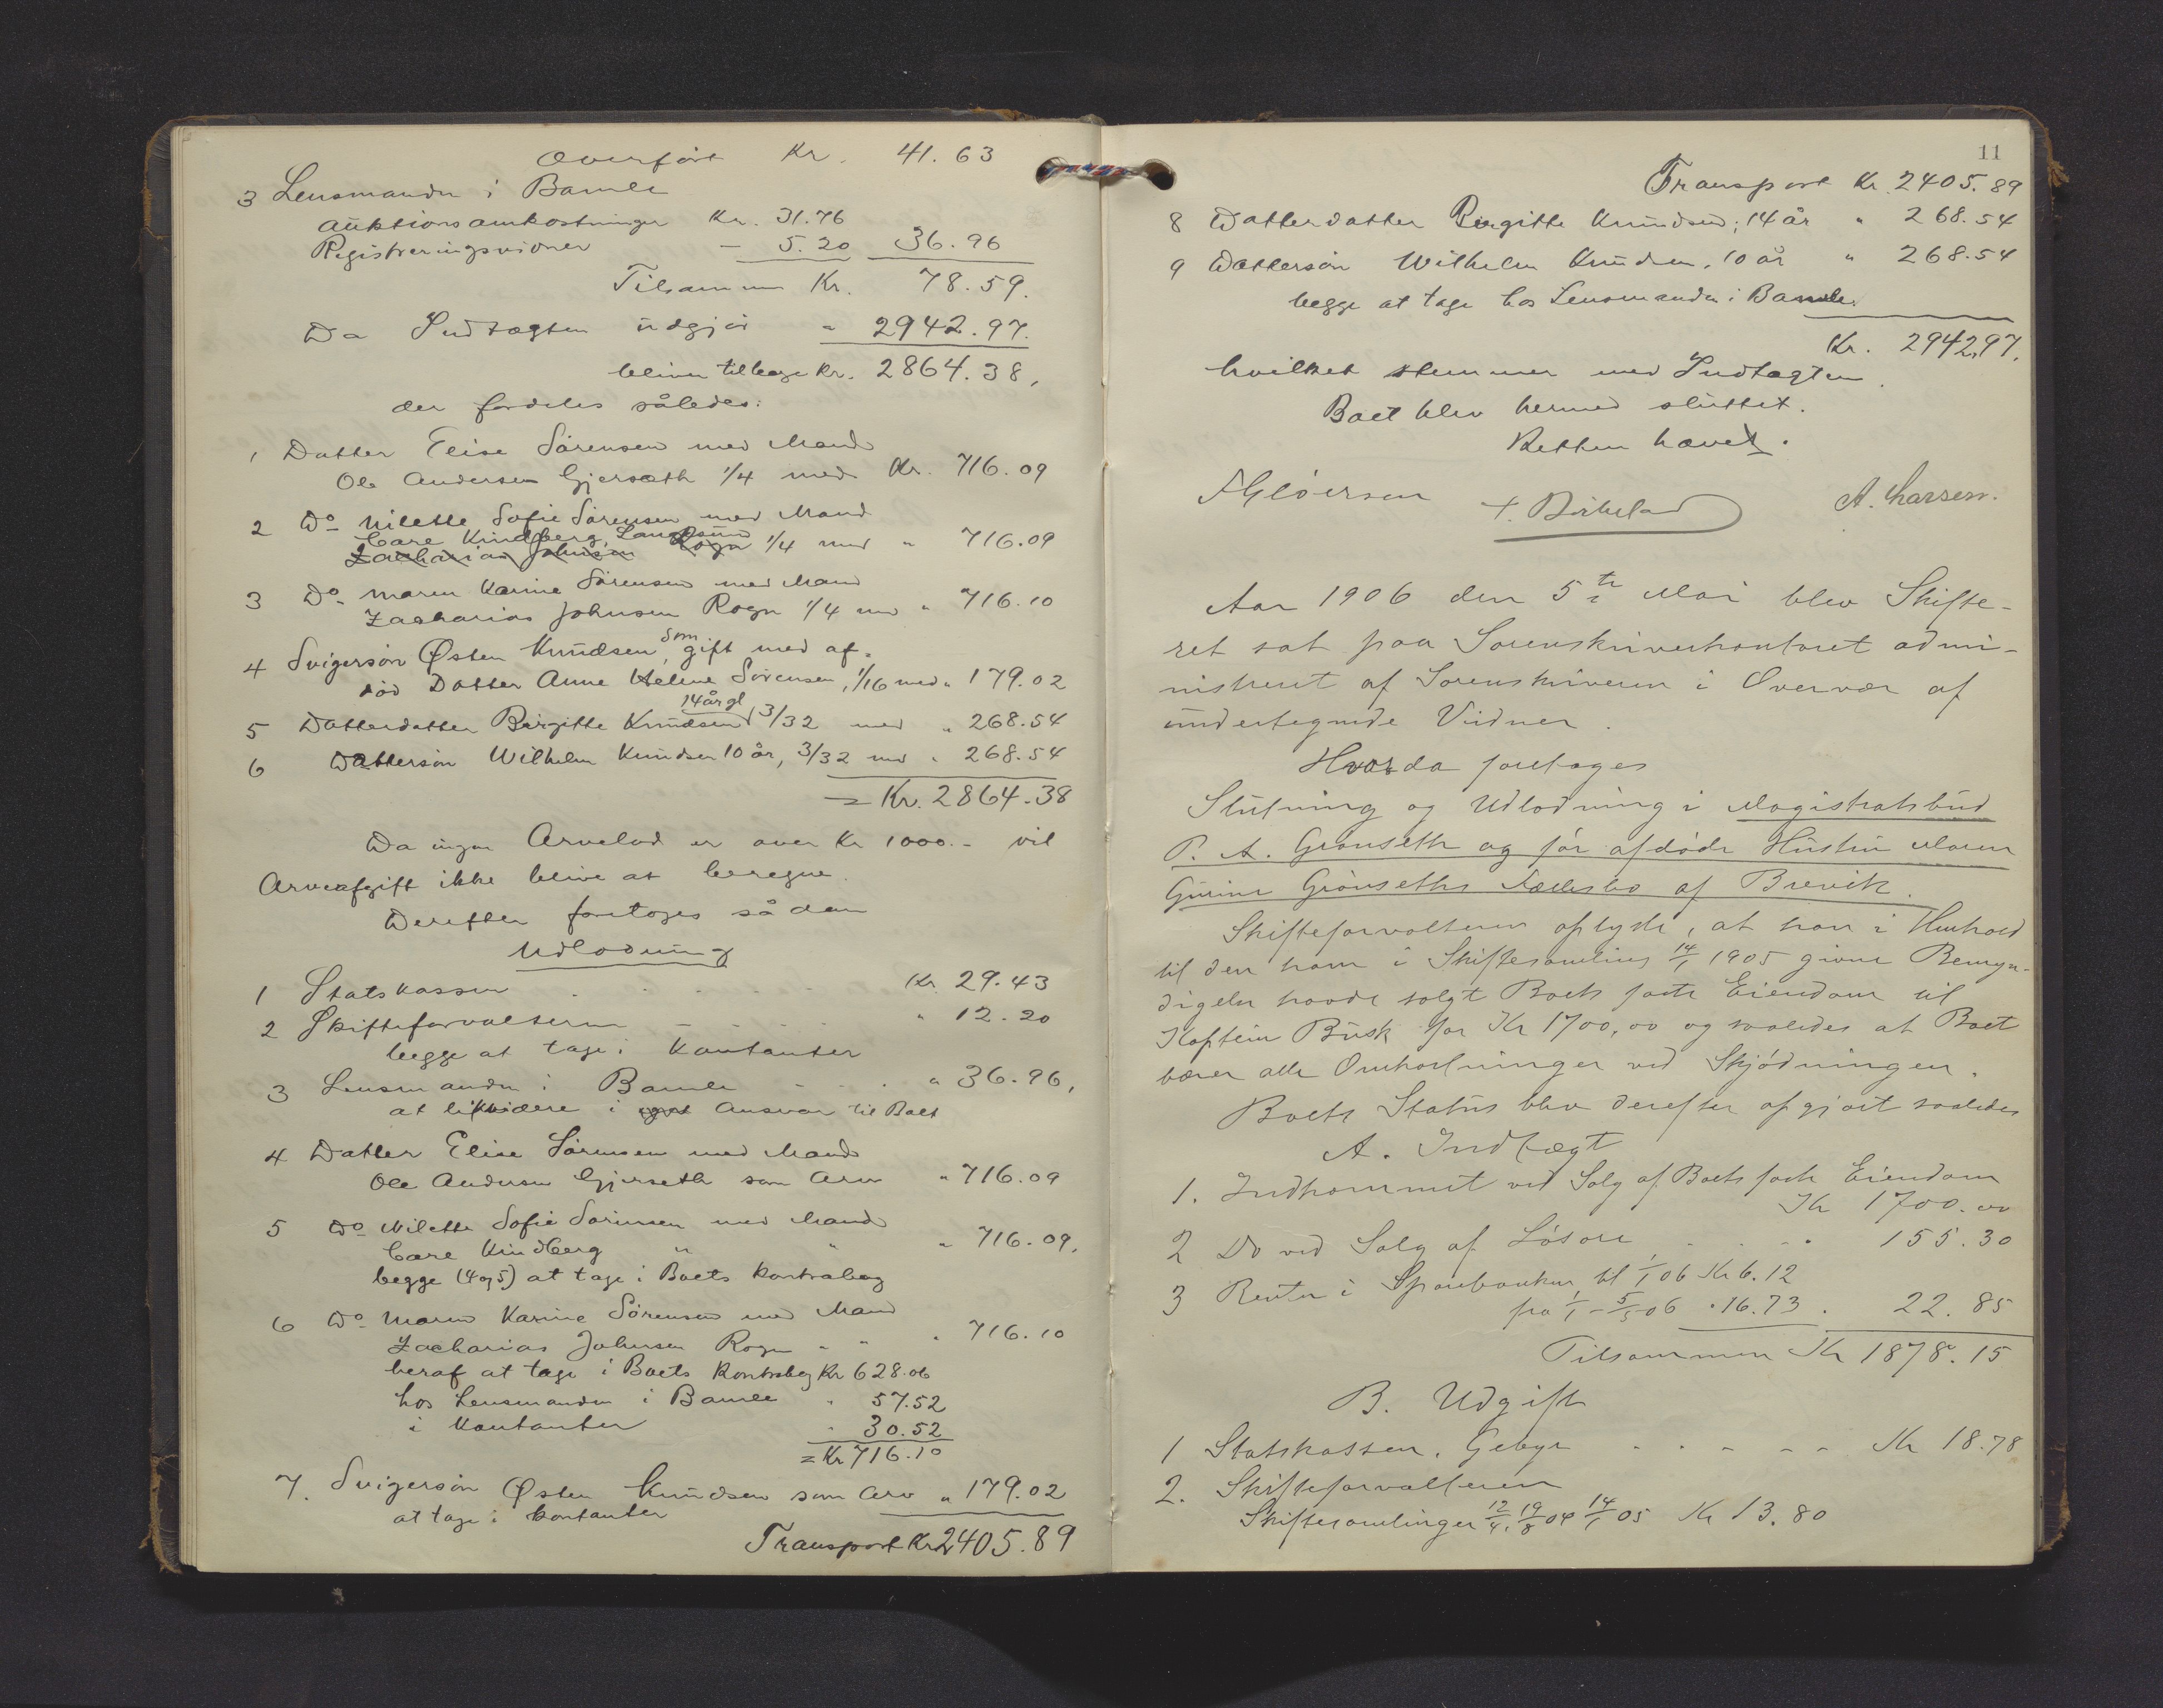 Overført Kr. 41.63
3 Lensmanden i Bamle
Auktionsomkostninger Kr. 31.76
Registreringsvidner — 5.20 36.96
Tilsammen Kr. 78.59.
Da Indtægten udgjør " 2942.97.
bliver tilbage Kr. 2864.38,
der fordeles således:
1 Datter Elise Sørensen med Mand
Ole Andersen Gjerseth 1/4 med Kr. 716.09
2 Do Nilette Sofie Sørensen med Mand
Care Kindberg, Langesund
Zacharias Johnsen Rogn 1/4 med " 716.09
3 Do Maren Karine Sørensen med Mand
Zacharias Johnsen Rogn 1/4 med " 716.10
4 Svigersøn Østen Knudsen, som gift med af-
død Datter Anne Helene Sørensen, 1/16 med " 179.02
5 Datterdatter Birgitte Knudsen 14 år gl, 3/32 med " 268.54
6 Dattersøn Wilhelm Knudsen 10 år, 3/32 med " 268.54
= Kr. 2864.38
Da ingen Arvelod er over Kr 1000.- vil
Arveafgift ikke blive at beregne.
Derefter foretoges sådan
Udlodning
1 Statskassen Kr. 29.43
2 Skifteforvalteren " 12.20
begge at tage i Kontanter
3 Lensmanden i Bamle " 36.96,
at likvidere i Ansvar til Boet
4 Datter Elise Sørensen med Mand
Ole Andersen Gjerseth som Arv " 716.09
5 Do Nilette Sofie Sørensen med Mand
Care Kindberg " " " 716.09,
begge (4 og 5) at tage i Boets Kontrabog
6 Do Maren Karine Sørensen med Mand
Zacharias Johnsen Rogn " " " 716.10
heraf at tage i Boets Kontrabog Kr 628.06
hos Lensmanden i Bamle " 57.52
i Kontanter " 30.52
= Kr 716.10
7. Svigersøn Østen Knudsen som Arv " 179.02
at tage i kontanter
Transport Kr 2405.89
11
Transport Kr. 2405.89
8 Datterdatter Birgitte Knudsen, 14 år " 268.54
9 Dattersøn Wilhelm Knudsen, 10 år " 268.54
begge at tage hos Lensmanden i Bamle.
Kr. 2942,97.
hvilket stemmer med Indtægten.
Boet blev hermed sluttet.
Retten hævet.
F Gløersen T. Birkeland A. Larsen.
Aar 1906 den 5te Mai blev Skifte-
ret sat paa Sorenskriverkontoret admi-
nistreret af Sorenskriveren i Overvær af
undertegnede Vidner.
Hvorda foretoges
Slutning og Udlodning i Magistratsbud
P. A. Grønseth og før afdøde Hustru Maren
Gurine Grønseths Fællesbo af Brevik.
Skifteforvalteren oplyste, at han i Henhold
til den ham i Skiftesamling 14/1 1905 givne Bemyn-
digelse havde solgt Boets faste Eiendom til
Kaptein Busk for Kr 1700,00 og saaledes at Boet
bærer alle Omkostninger ved Skjødningen.
Boets Status blev derefter opgjort saaledes
A. Indtægt
1. Indkommet ved Salg af Boets faste Eiendom
Kr 1700.00
2 Do ved Salg af Løsøre 155.30
3 Renter i Sparebanken til 1/1 06 Kr 6.12
fra 1/1 - 5/5 06 " 16.73. 22.85
Tilsammen Kr 1878.15
B. Udgift
1 Statskassen, Gebyr Kr 18.78
2. Skifteforvalteren
Skiftesamlinger 12/4, 19/8 04 14/1 05 Kr 13.80